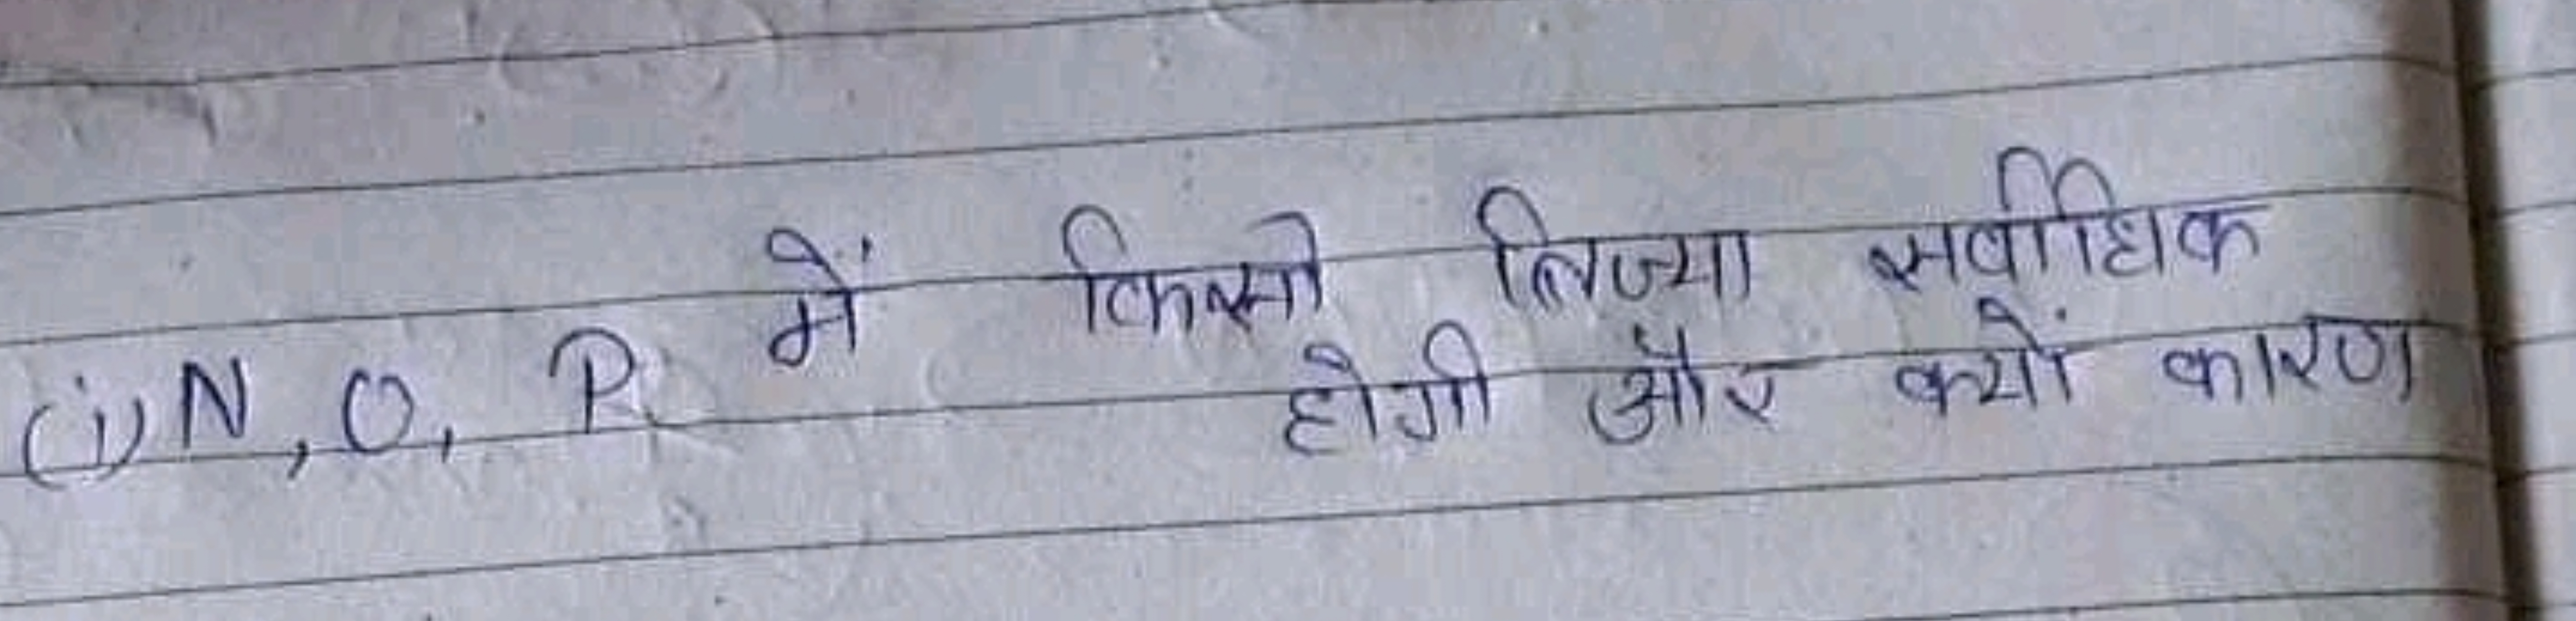 (i) N, O, P में किसी त्रिज्या सर्वाधिक
होगी और क्यों कारण